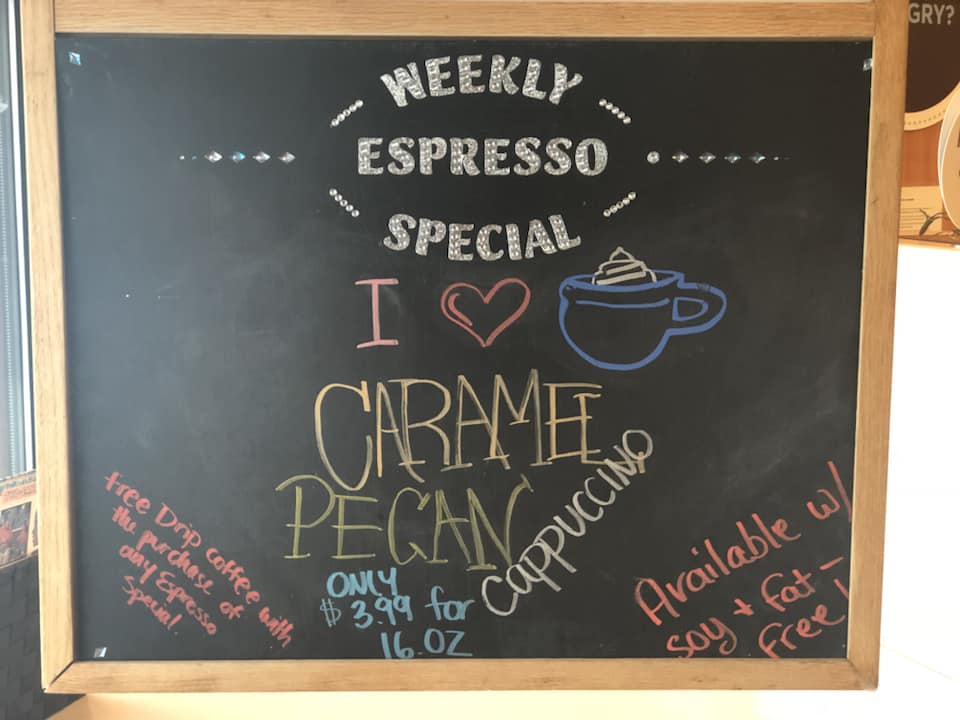 GRY?
WEEKLY
ESPRESSO
SPECIAL
I
CARAMEL
PECAN
CAPPUCCINO
Free Drip coffee with
the purchase of
any Espresso
Special.
ONLY
$3.99 for
16.OZ
Available w/
soy + Fat-
Free!